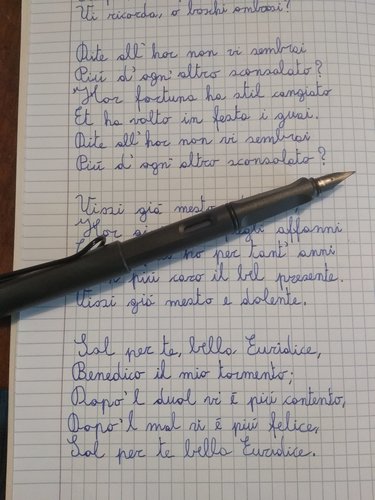 Vi ricorda, o boschi ombrosi?
Dite all'hor non vi sembrai
Piú d'ogni altro sconsolato?
Hor fortuna ha stil cangiato
Et ha volto in festa i guai.
Dite all'hor non vi sembrai
Piú d'ogni altro sconsolato?
Vissi giá mesto
Hor affanni
ho per tant' anni
piú caro il bel presente.
Vissi giá mesto e dolente.
Sol per te, bella Euridice,
Benedico il mio tormento;
Dopo'l duol vi é piú contento,
Dopo'l mal vi é piú felice,
Sol per te bella Euridice.